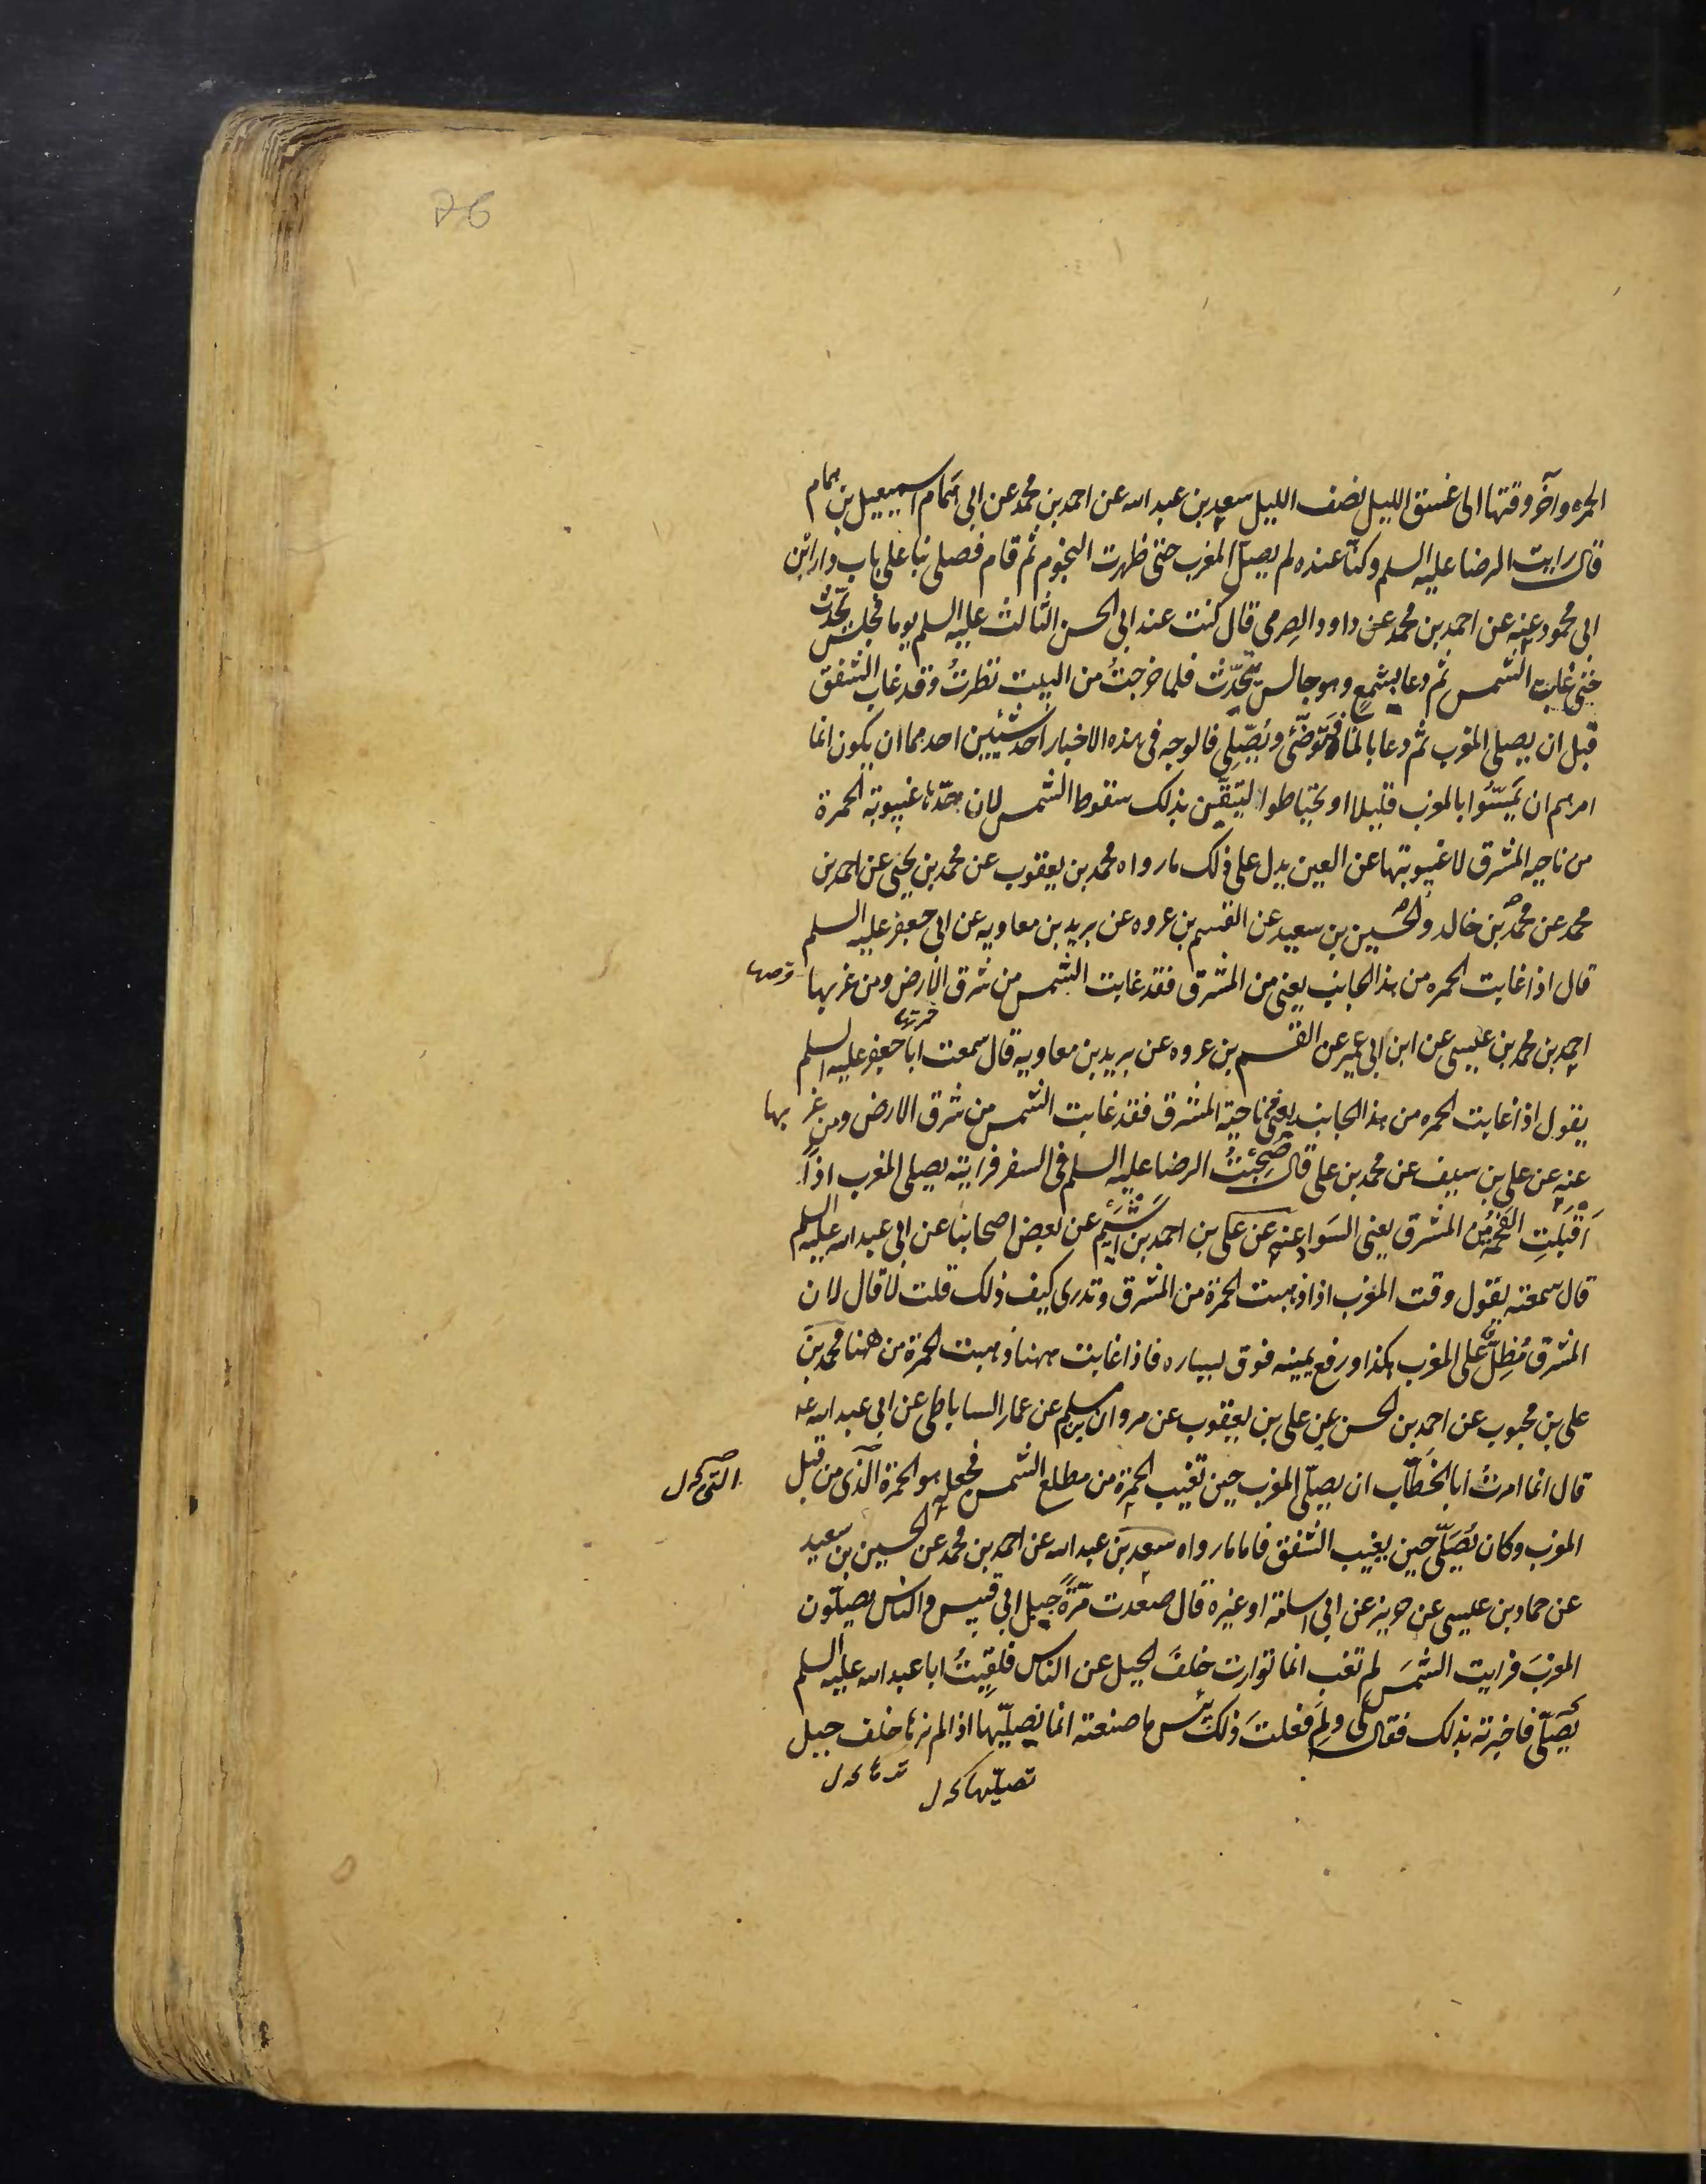 76
الحمرة وآخر وقتها الى غسق الليل نصف الليل سعد بن عبد الله عن احمد بن محمد عن ابى همام اسمعيل بن همام
قال رايت الرضا عليه السلم وكنا عنده لم يصل المغرب حتى ظهرت النجوم ثم قام فصلى بنا على باب دار ابن
ابى محمود عنه عن احمد بن محمد عن داود الصرمى قال كنت عند ابى الحسن الثالث عليه السلم يوما فجلس يحدث
حتى غابت الشمس ثم دعا بشمع وهو جالس يتحدث فلما خرجت من البيت نظرت وقد غاب الشفق
قبل ان يصلى المغرب ثم دعا بالماء فتوضئ ويصلى فالوجه فى هذه الاخبار احد شيئين احدهما ان يكون انما
امرهم ان يمسوا بالمغرب قليلا او يحتاطوا ليتيقن بذلك سقوط الشمس لان حدها غيبوبة الحمرة
من ناحيه المشرق لا غيبوبتها عن العين يدل على ذلك ما رواه محمد بن يعقوب عن محمد بن يحيى عن احمد بن
محمد عن محمد بن خالد والحسين بن سعيد عن القسم بن عروه عن بريد بن معاويه عن ابى جعفر عليه السلم
قال اذا غابت الحمره من هذا الجانب يعنى من المشرق فقد غابت الشمس من شرق الارض ومن غربها
احمد بن محمد بن عيسى عن ابن ابى عمير عن القسم بن عروه عن بريد بن معاويه قال سمعت ابا جعفر عليه السلم
يقول اذا غابت الحمره من هذا الجانب يعنى ناحية المشرق فقد غابت الشمس من شرق الارض ومن غربها
عنه عن على بن سيف عن محمد بن على قال صحبت الرضا عليه السلم فى السفر فرايته يصلى المغرب اذا
اقبلت الفحمة من المشرق يعنى السواد عنه عن على بن احمد بن اشيم عن بعض اصحابنا عن ابى عبد الله عليه السلم
قال سمعته يقول وقت المغرب اذا ذهبت الحمرة من المشرق وتدرى كيف ذلك قلت لا قال لان
المشرق مطل على المغرب هكذا ورفع يمينه فوق يساره فاذا غابت ههنا ذهبت الحمرة من ههنا محمد بن
على بن محبوب عن احمد بن الحسن عن على بن يعقوب عن مروان بن مسلم عن عمار الساباطى عن ابى عبد الله عه
قال انما امرت ابا الخطاب ان يصلى المغرب حين تغيب الحمرة من مطلع الشمس فجعله هو الحمرة الذى من قبل
التى
المغرب وكان يصلى حين يغيب الشفق فاما ما رواه سعد بن عبد الله عن احمد بن محمد عن الحسين بن سعيد
عن حماد بن عيسى عن حريز عن ابى اسامة او غيره قال صعدت مرة جبل ابى قبيس والناس يصلون
المغرب فرايت الشمس لم تغب انما توارت خلف الجبل عن الناس فلقيت ابا عبد الله عليه السلم
يصلى فاخبرته بذلك فقال لى ولم فعلت ذلك بئس ما صنعت انما نصليها اذا لم نرها خلف جبل
تصليها